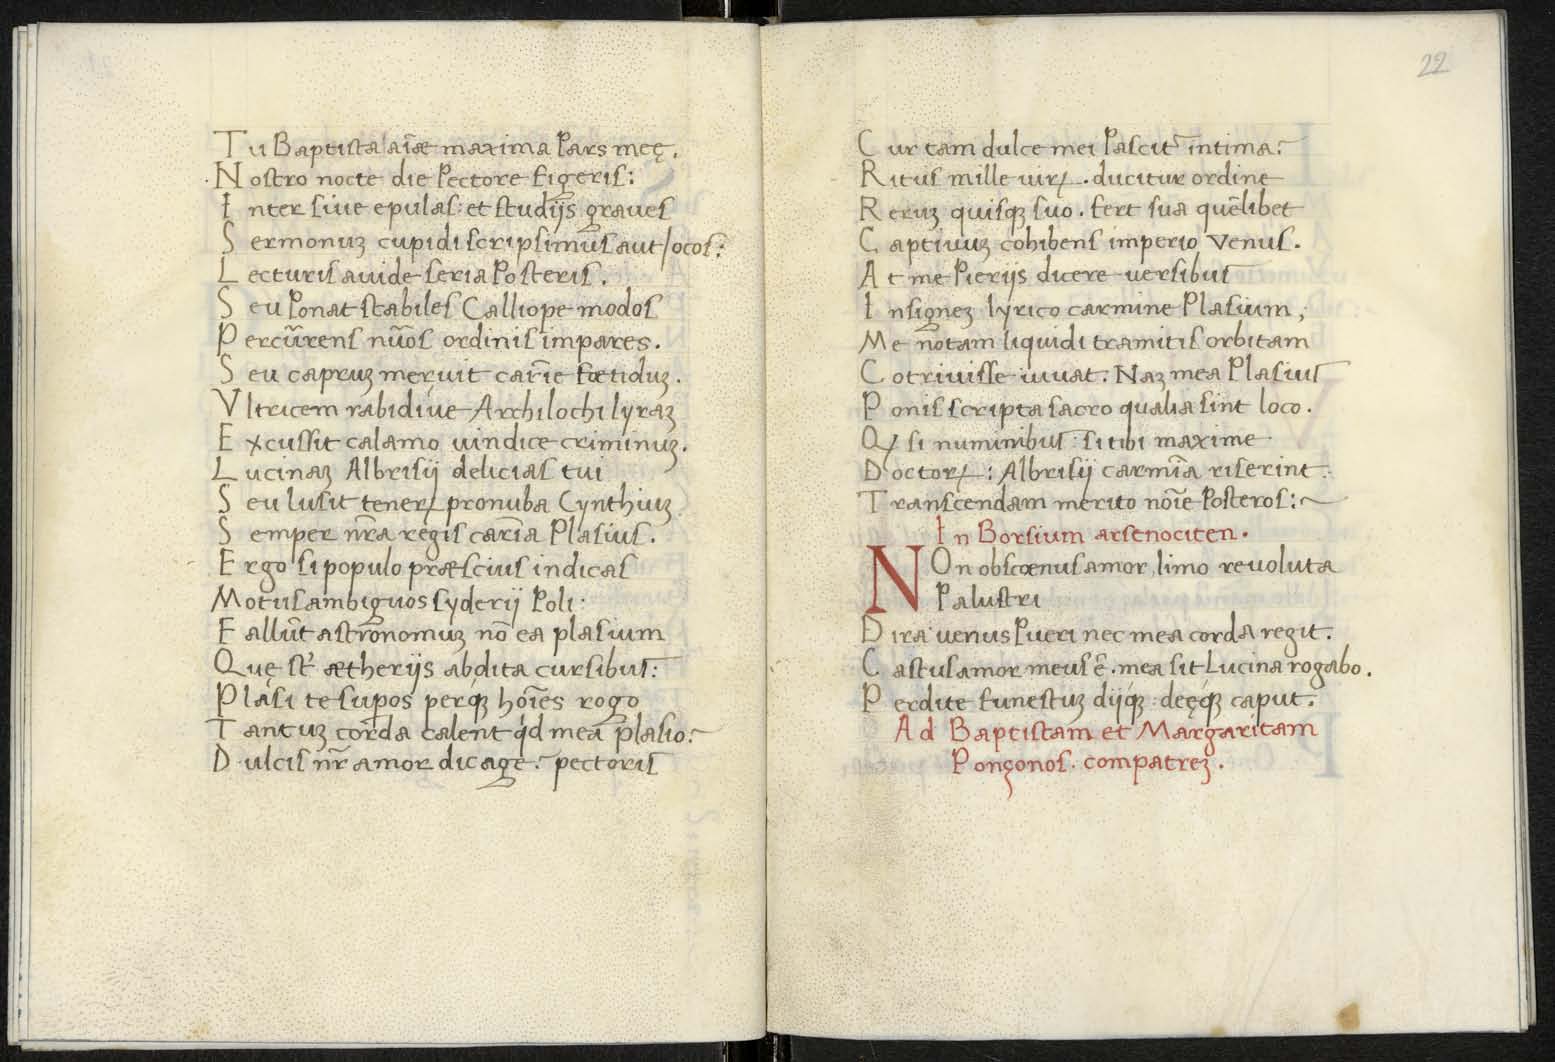 Tu Baptista aīæ maxima Pars meę.
Nostro nocte die Pectore figeris:
Inter siue epulas: et studijs graues
Sermonuꝫ cupidi scripsimus aut Iocos:
Lecturis auide seria Posteris.
Seu Ponat stabiles Calliope modos
Percūrens nūos ordinis impares.
Seu capruꝫ meruit carīe fœtiduꝫ.
Vltricem rabidiue Archilochi lyraꝫ
Excussit calamo uindice criminuꝫ.
Lucinaꝫ Albrisij delicias tui
Seu lusit teneꝝ pronuba Cynthiuꝫ
Semper nr̄a regis car̄ia Plasius.
Ergo si populo præscius indicas
Motus ambiguos syderij Poli:
Fallūt astronomuꝫ nō ea plasium
Quę st̄ ætherijs abdita cursibus:
Plasi te supos perqꝫ hoīes rogo
Tantuꝫ corda calent qd mea plasio?
Dulcis nr̄ amor dic age? pectoris
22
Cur tam dulce mei Pascit᷑ intima?
Ritus mille uiꝝ. ducitur ordine
Reruꝫ quisqꝫ suo. fert sua quēlibet
Captiuuꝫ cohibens imperio Venus.
At me Pierijs dicere uersibus
Insigneꝫ lyrico carmine Plasium,
Me notam liquidi tramitis orbitam
Cōtriuisse iuuat. Naꝫ mea Plasius
Ponis scripta sacro qualia sint loco.
Qꝫ si numinibus: si tibi maxime
Doctoꝝ: Albrisij carmīa riserint.
Transcendam merito noīe Posteros:~
In Borsium arsenociten.
NOn obscœnus amor, limo reuoluta
Palustri
Dira uenus Pueri nec mea corda regit.
Castus amor meus ē. mea sit Lucina rogabo.
Perdite funestuꝫ dijqꝫ: deęqꝫ caput.
Ad Baptistam et Margaritam
Ponçonos. compatreꝫ.